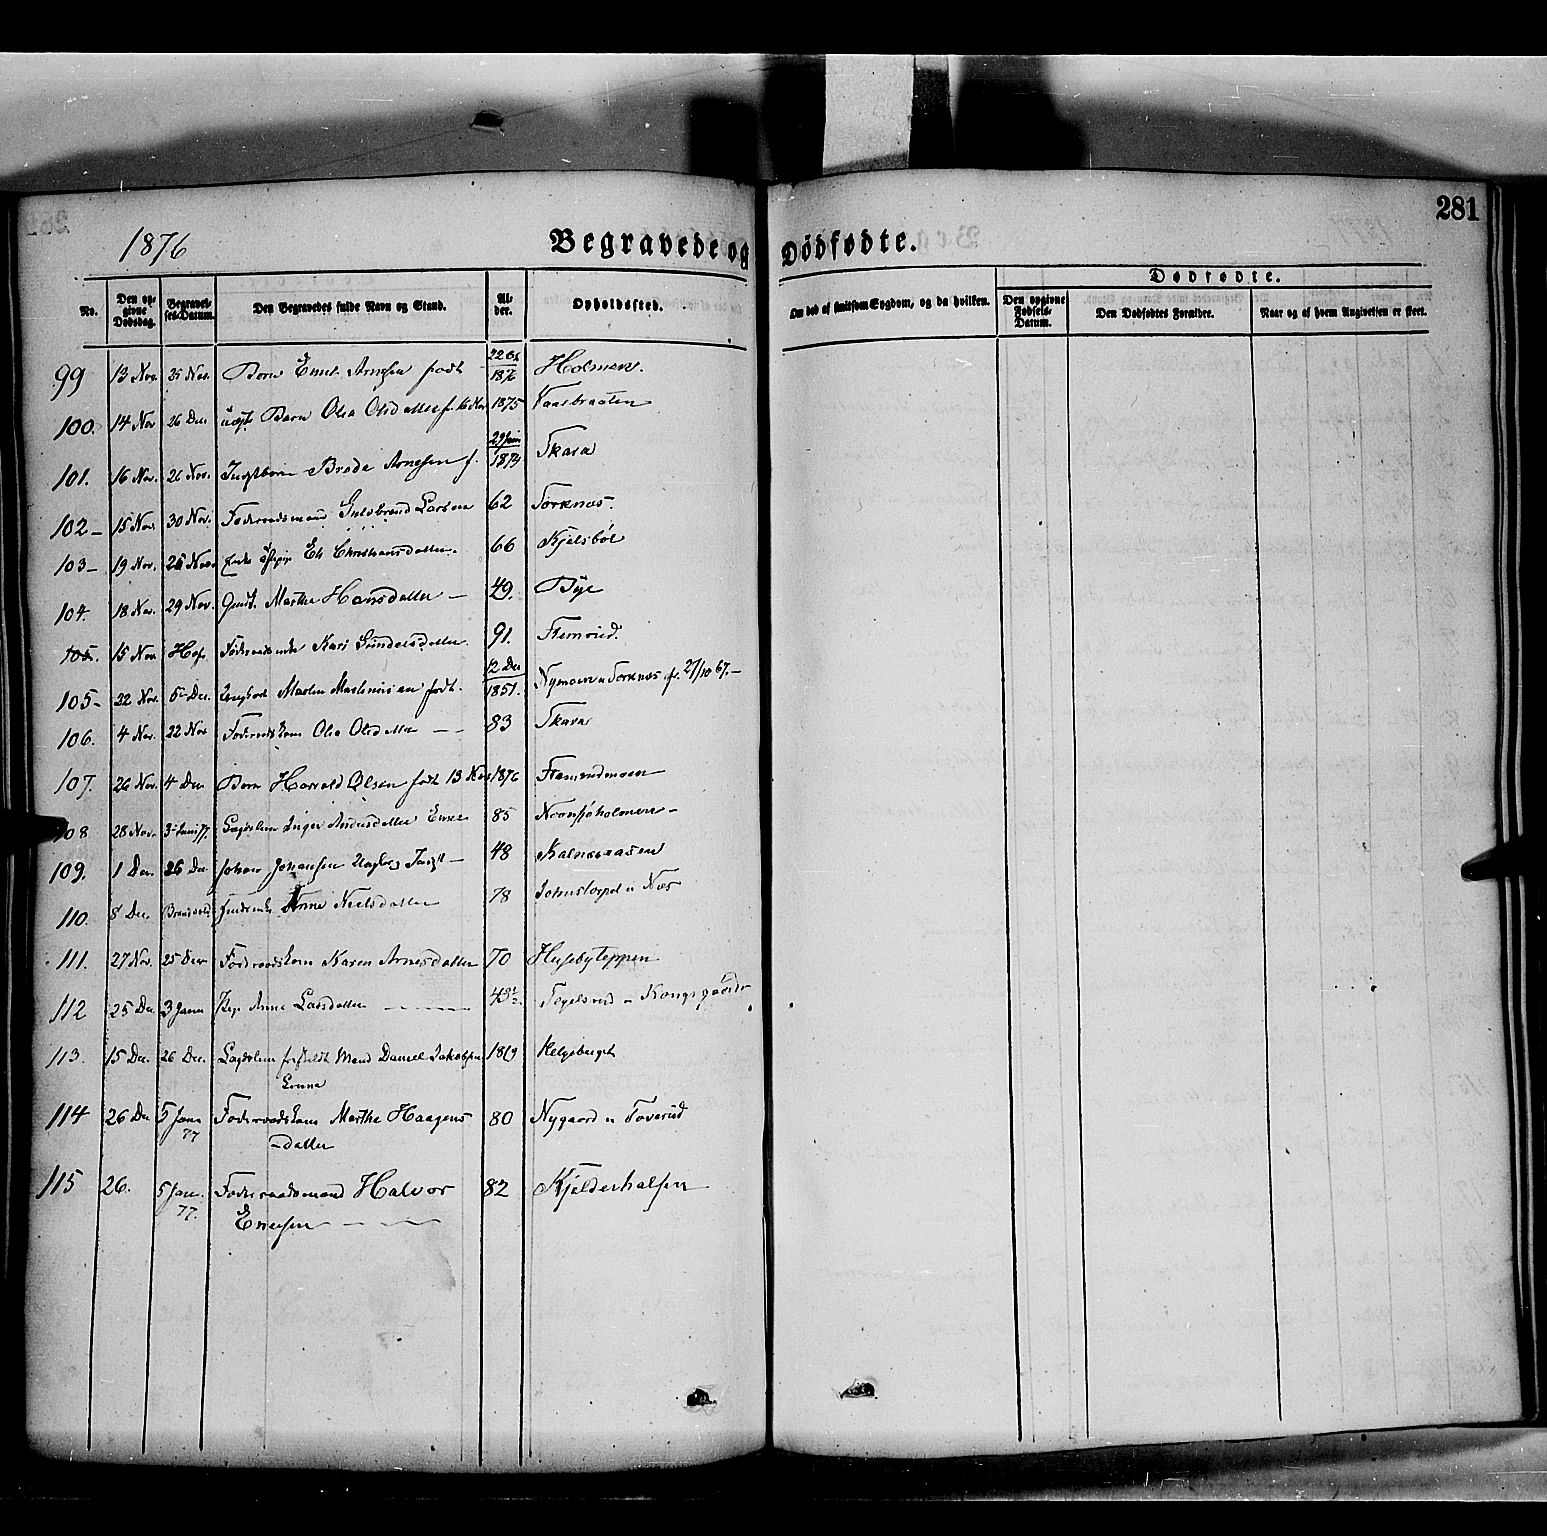 281
1876
Begravede og Dödfödte.
Dødfødte.
No.
Den opgivne Dødsdag.
Begravelses-Datum.
Den Begravedes fulde Navn og Stand.
Alder.
Opholdssted.
Om død af smitsom Sygdom, og da hvilken.
Den opgivne Fødsels-Datum.
Den Dødfødtes Forældre.
Naar og af hvem Angivelsen er skeet.
99 13 Nov. 25 Nov. Barn Emil Arnesen født 22 Oct 1876 Holmen.
100. 14 Nov 26 Dec Uægt Barn Olea Olsdatter f. 16 Nov 1875
101. 16 Nov. 26 Nov. Arnesen f. 29 Juni 1874 Skara
102 - 15 Nov. 30 Nov. Føderaadsmand Gulbrand Larsen 62 Torknæs.
103 - 19 Nov. 25 Nov. Eli Christiansdatter. 66 Kjelsböl
104. 18 Nov. 29 Nov. Marthe Hansdatter - 49. Bye
105. 15 Nov Hof Føderaadsenke Kari Gundersdatter 91. Flemsrud.
105 - 22 Nov. 5 Dec. Ungkarl Martin Martinusen født. 12 Dec 1851. Nymoen u Torknæs fr. 27/10 67. -
106. 4 Nov. 22 Nov Føderaadskone Olea Olsdatter - - 83 Skara
107. 26 Nov. 4 Dec Barn Harald Olsen født 13 Nov 1876
108 28 Nov. 3 Jan 77. Lægdslem Inger Andersdatter Enke 85
109. 1 Dec. 26 Dec Johan Johansen 48 Kalnæsaasen
110. 8 Dec. Brandval Anne Nielsdatter 78 Johnstorpet u Næs
111. 27 Nov. 25 Dec Føderaadskone Karen Arnesdatter 70 Husebyteppen
112 25 Dec 3 Janr Pige Anne Larsdatter 48½ Tegelsrud u Kongsgaard
113. 15 Dec. 26 Dec. Lægdslem Mand Daniel Jakobsen 1819 Helgeberget
114 26 Dec 5 Janr 77 Føderaadskone Marthe Haagens
-datter 80 Nygaard u Toverud
115 26. 5 Jan. 77. Føderaadsmand Halvor 82 Kjelderhalsen
Enersen